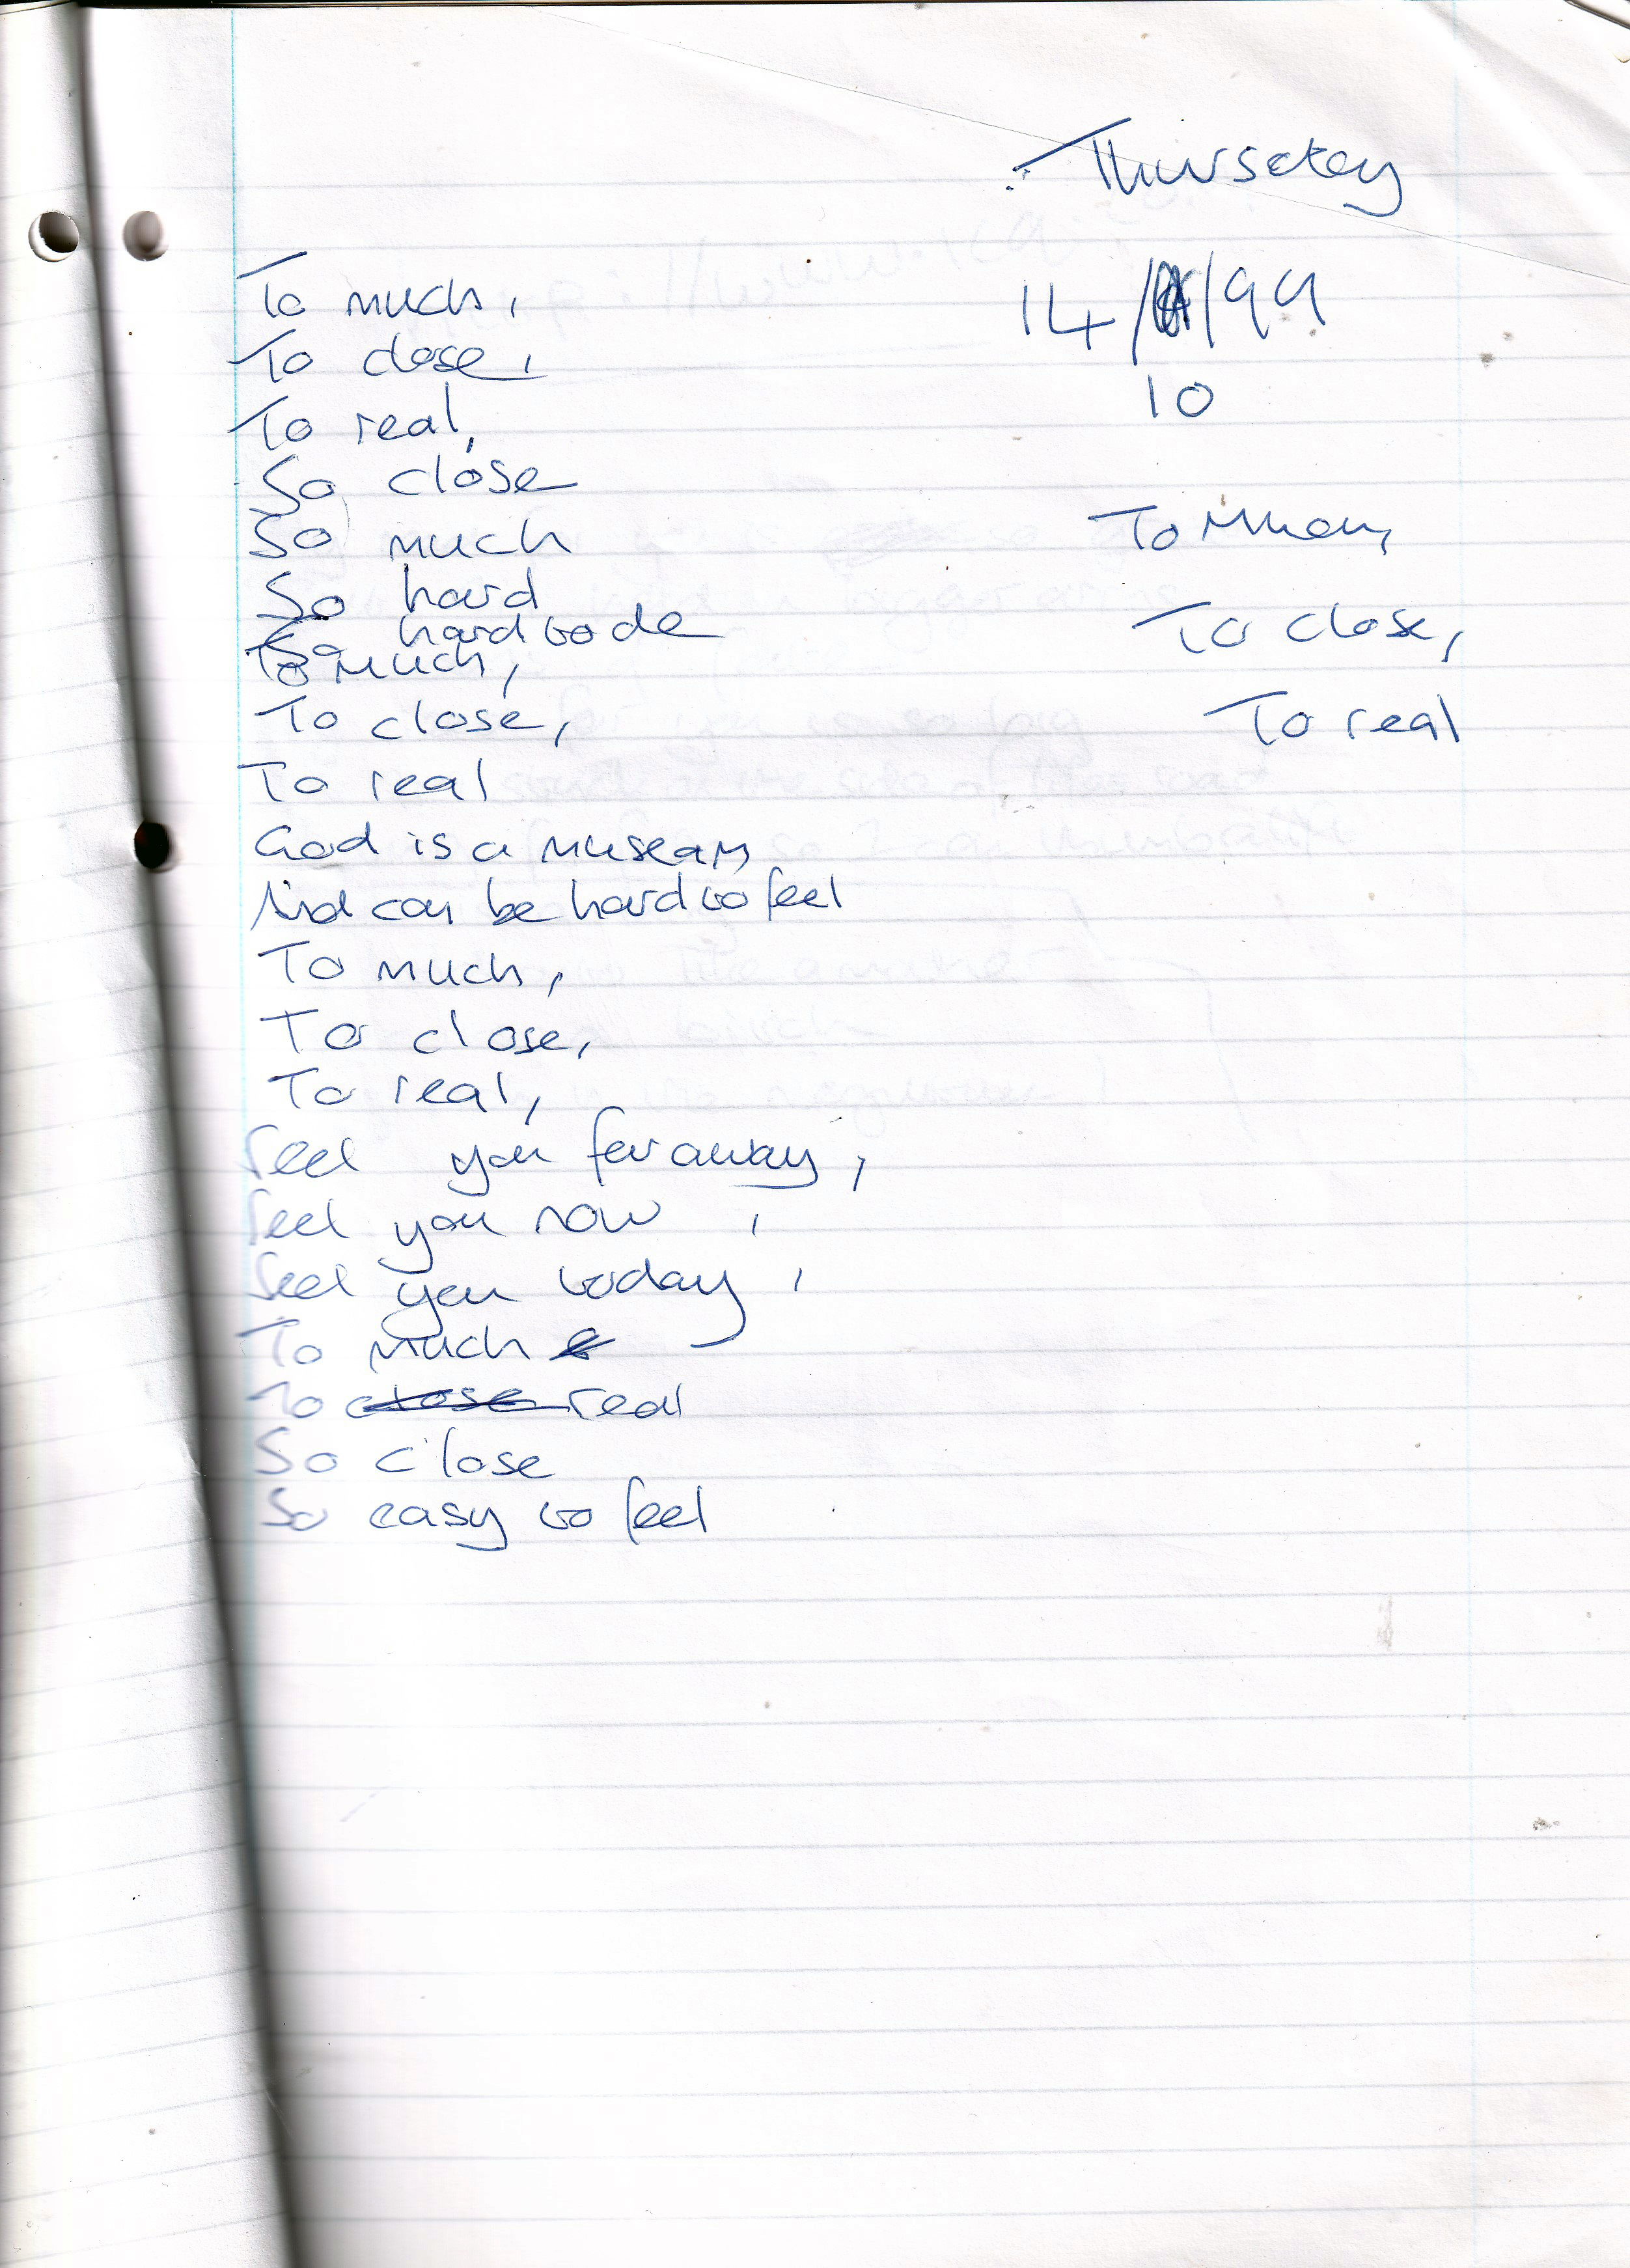 Thursday
14/ /99
10
To much,
To close,
To real,
So close
So much
So hard
So hard to de
To much,
To close,
To real
God is a museam
And can be hard to feel
To much,
To close,
To real,
Feel you far away,
Feel you now,
Feel you today,
To much
To close real
So close
So easy to feel
To
To close,
To real